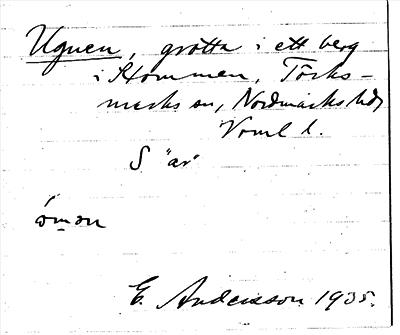 Ugnen, grotta i ett berg
i Kommen, Torks-
marks sn, Nordmarks hd,
Vrml l.
S "ar"
E. Andersson 1935.